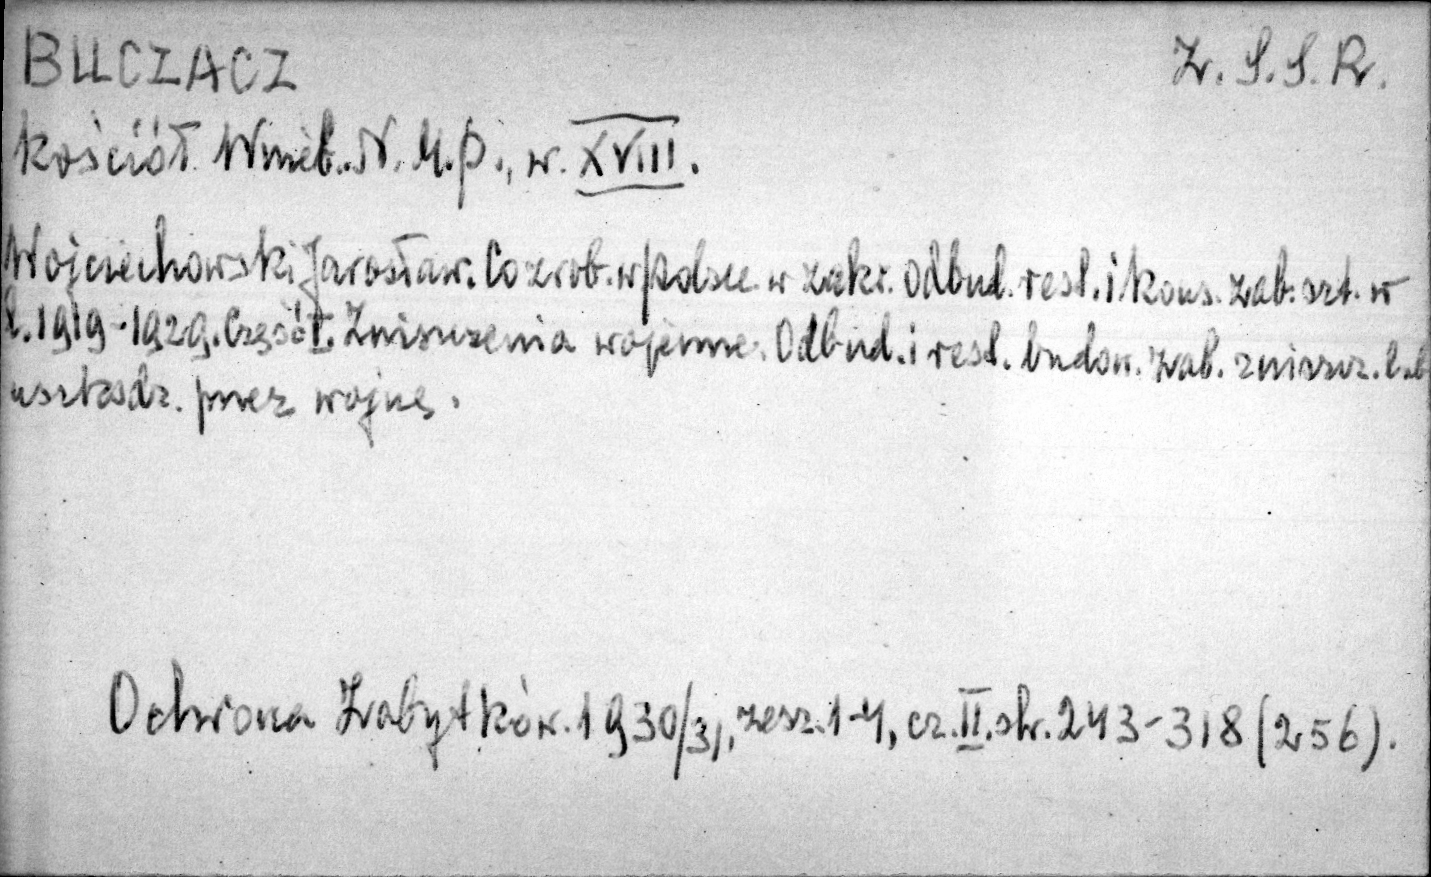 BUCZACZ Z.S.S.R.
kościół Wnieb. N.M.P., w. XVIII.
Wojciechowski Jarosław. Co zrob. w Polsce w zakr. odbud. rest. i kons. zab. szt. w
l. 1919-1929. Część I. Zniszczenia wojenne. Odbud. i rest. budow. zab. zniszcz. lub
uszkodz. przez wojnę.
Ochrona Zabytków. 1930/31, zesz. 1-4, cz. II. str. 243-318 (256).